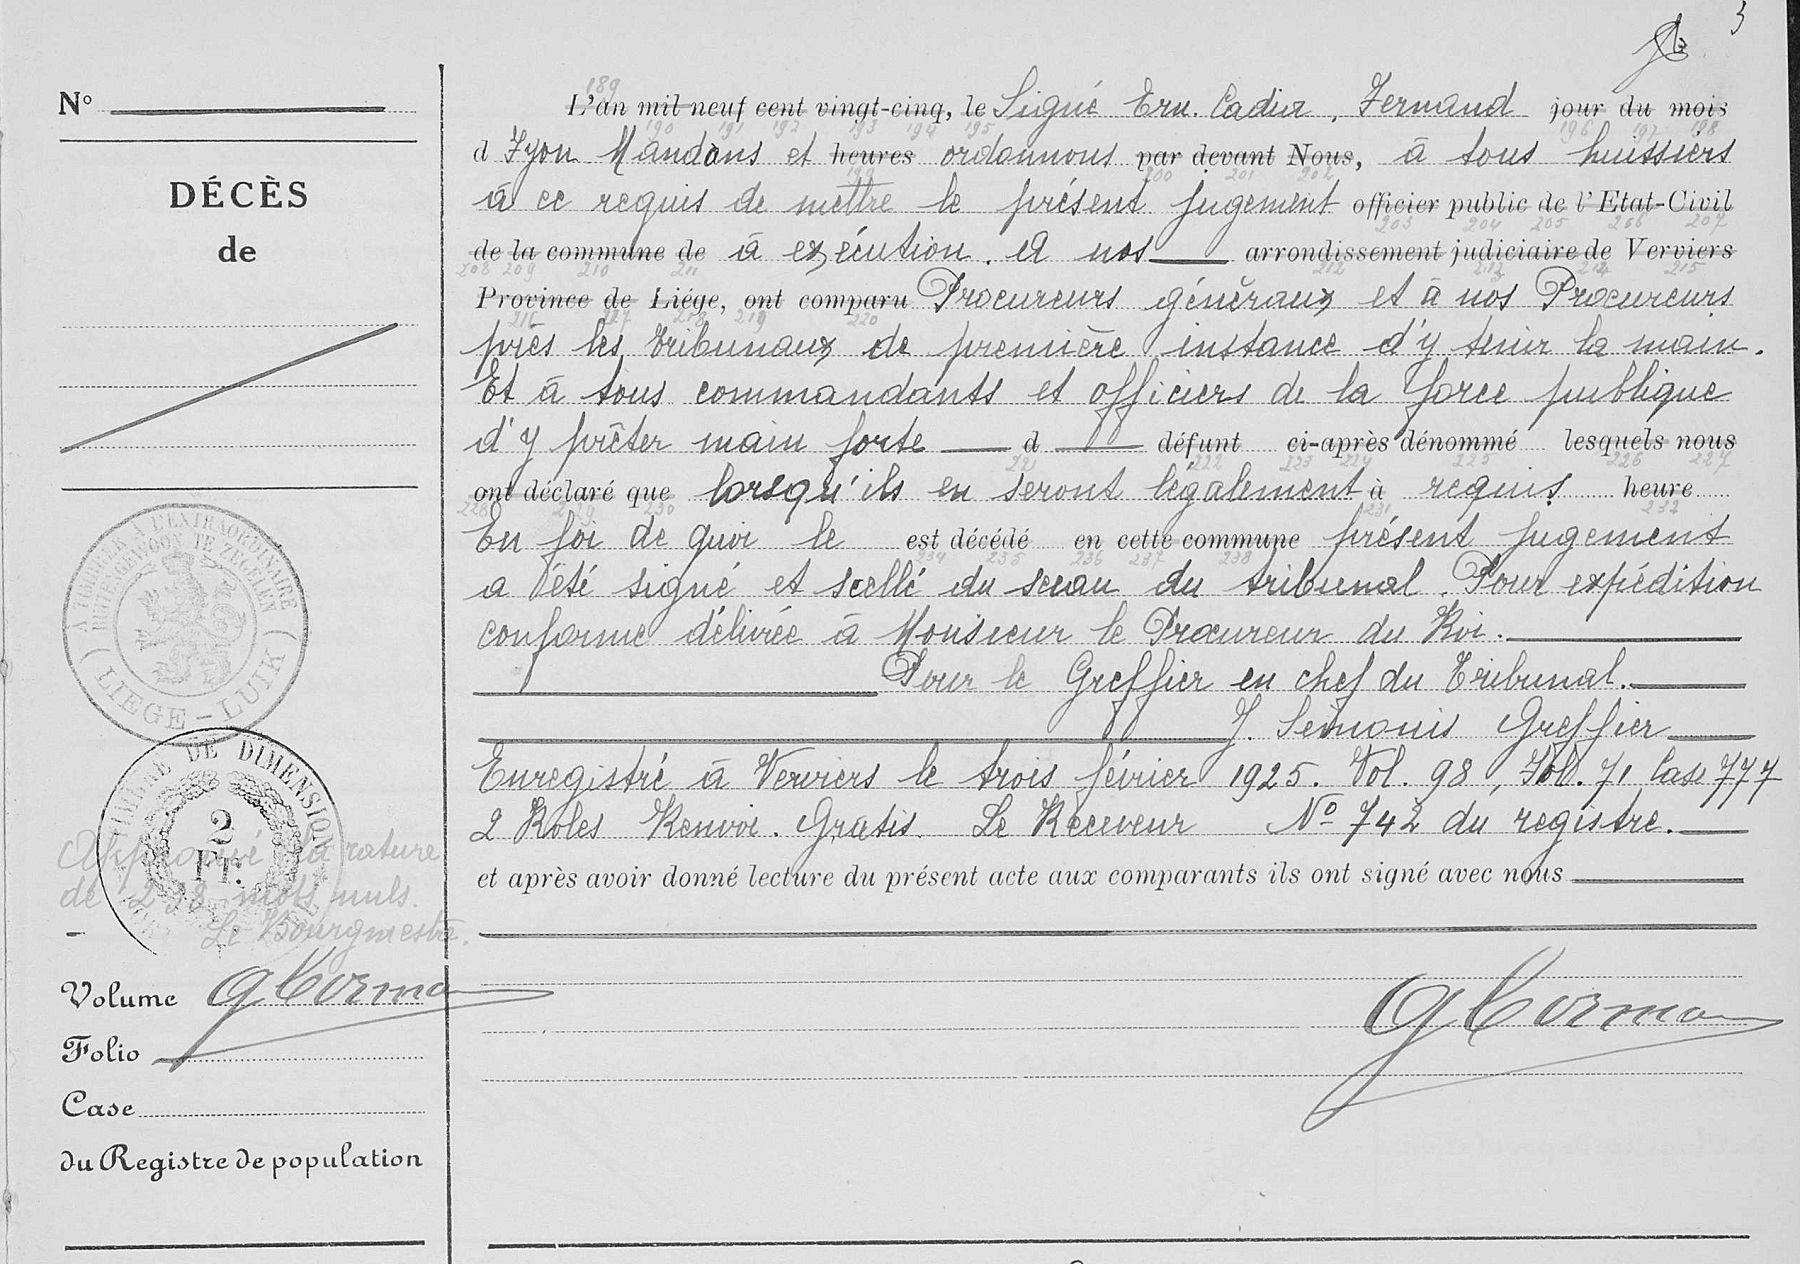 3
N°
DÉCÈS
de
À TIMBRER À L'EXTRAORDINAIRE
BUITENGEWOON TE ZEGELEN
LIEGE - LUIK
TIMBRE DE DIMENSION
2
Fr.
Approuvé la rature
de 238 mots nuls.
Le Bourgmestre.
Volume
Folio
Case
du Registre de population
189
L'an mil neuf cent vingt-cinq, le Signé Ern. Cadiat, Fernand jour du mois
190 191 192 193 194 195 196 197 198
d Lyon Mandons et heures ordonnons par devant Nous, à tous huissiers
199 200 201 202
à ce requis de mettre le présent jugement officier public de l'Etat-Civil
203 204 205 206 207
de la commune de à exécution. Et nos arrondissement judiciaire de Verviers
208 209 210 211 212 213 214 215
Province de Liége, ont comparu Procureurs généraux et à nos Procureurs
216 217 218 219 220
près les tribunaux de première instance d'y tenir la main.
Et à tous commandants et officiers de la force publique
d'y prêter main forte d défunt ci-après dénommé lesquels nous
221 222 223 224 225 226 227
ont déclaré que lorsqu'ils en seront légalement à requis heure
228 229 230 231 232
En foi de quoi le est décédé en cette commune présent jugement
234 235 236 237 238
a été signé et scellé du sceau du tribunal. Pour expédition
conforme délivrée à Monsieur le Procureur du Roi.
Pour le Greffier en chef du Tribunal.
Greffier
Enregistré à Verviers le trois février 1925. Vol. 98, Fol. 71 Case 777
2 Roles Renvoi. Gratis. Le Receveur N° 742 du registre.
et après avoir donné lecture du présent acte aux comparants ils ont signé avec nous